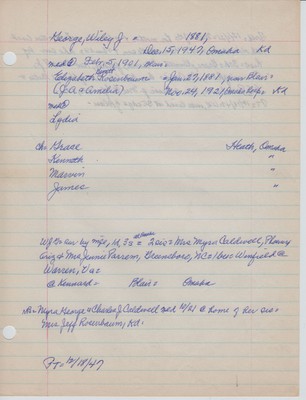 George, Wiley J. - 1881,
Dec. 15, 1947, Omaha Kd
md① Feb. 5, 1901, Blair =
Elizabeth Rosenbaum = Jan. 27, 1881, near Blair =
(J.A. & Amelia) Nov. 24, 1921
md②
Lydia
Ch: Grace Heath, Omaha
Kenneth "
Marvin "
James "
W.J. = sur by wife, 1d, 3s = 2 sis = Mrs Myra Caldwell,
& Mrs Jennie Parrom, Greensboro, NC = 1 bro = Winfield @
Warren, Va =
@ Kennard = Blair = Omaha
Re = Myra George & Charles J Caldwell md 10/21 @ home of Rev &
Mrs Jeff Rosenbaum, Kd.
PT = 12/18/47